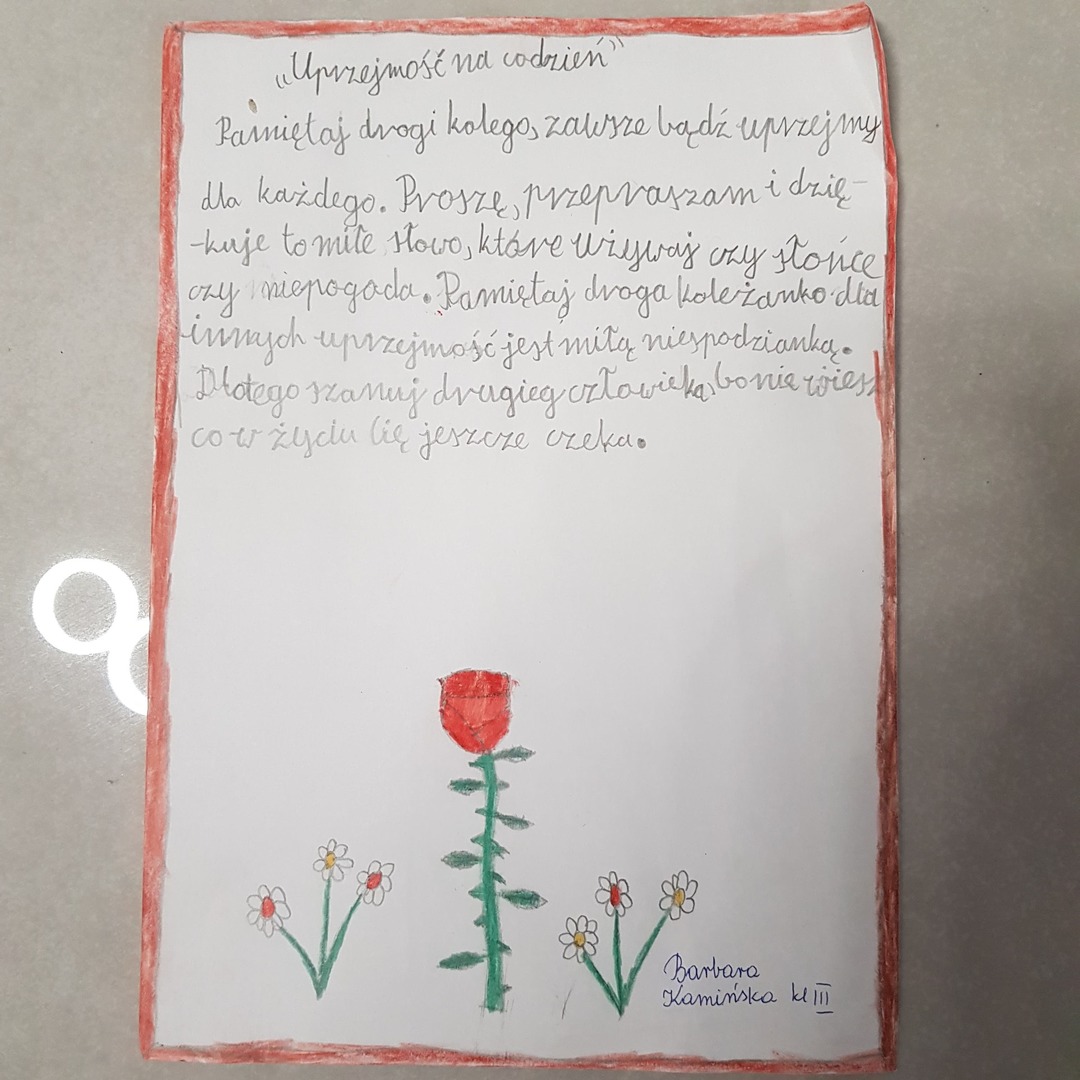 „Uprzejmość na codzień”
Pamiętaj drogi kolego, zawsze bądź uprzejmy
dla każdego. Proszę, przepraszam i dzię-
-kuje to miłe słowo, które używaj czy słońce
czy niepogoda. Pamiętaj droga koleżanko dla
innych uprzejmość jest miłą niespodzianką.
Dlatego szanuj drugieg człowieka, bo nie wiesz
co w życiu cię jeszcze czeka.
Barbara
Kamińska kl III